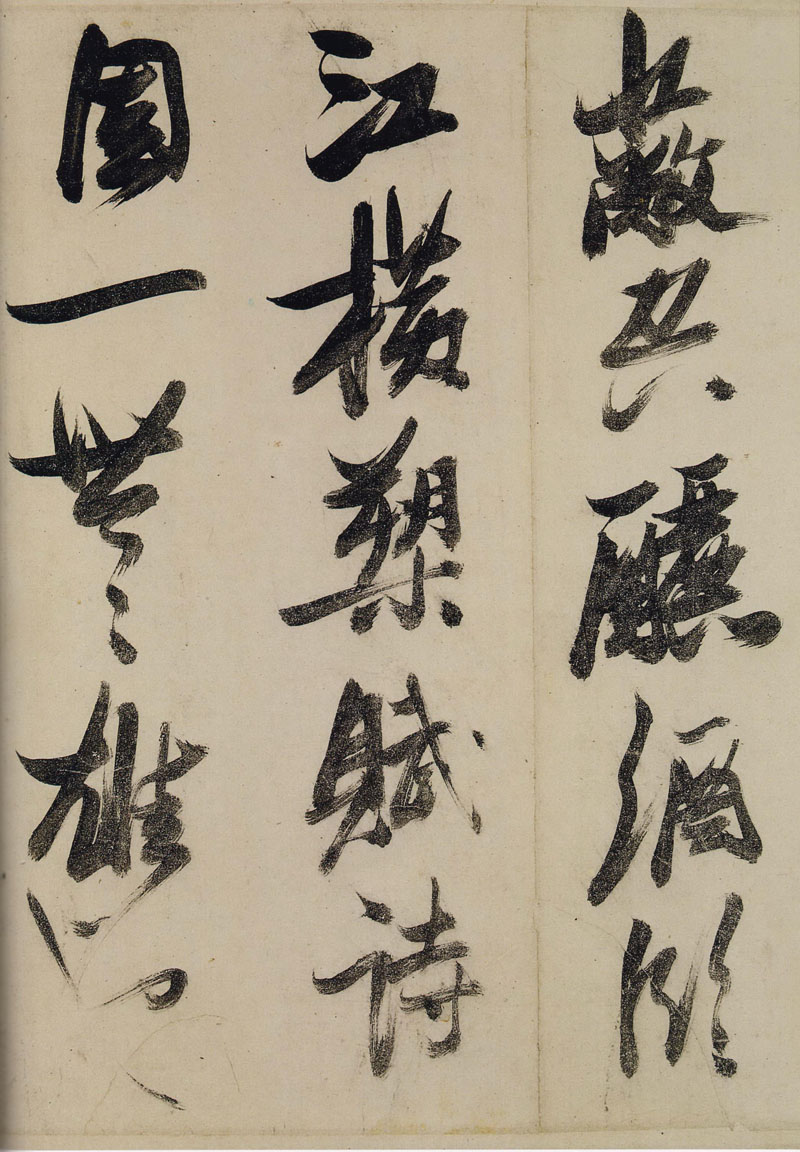 蔽空釃酒臨
江橫槊賦詩
固一世之雄也